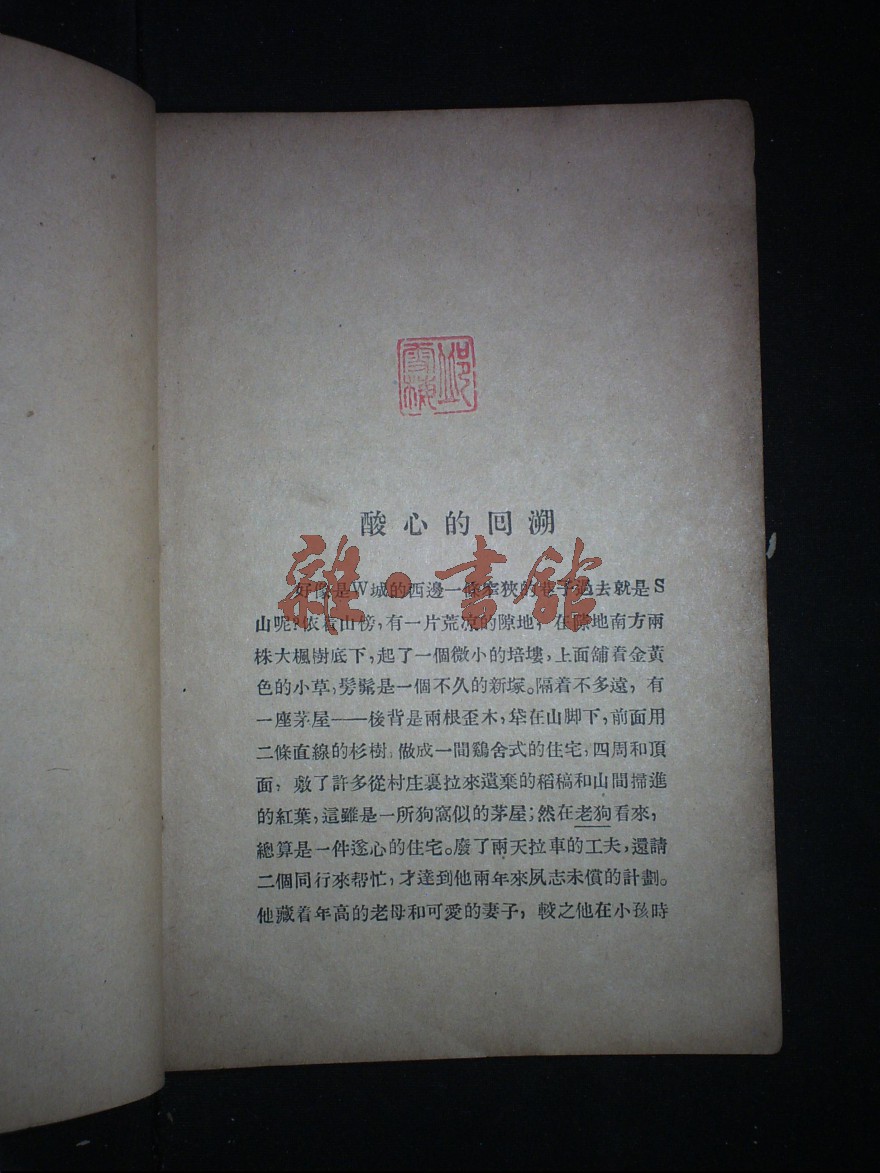 酸心的囘溯
好像是W城的西邊一條窄狹的巷子過去就是S
山呢？依着山傍，有一片荒凉的隙地，在隙地南方兩
株大楓樹底下，起了一個微小的培塿，上面舖着金黃
色的小草，髣髴是一個不久的新塚。隔着不多遠，有
一座茅屋——後背是兩根歪木，垈在山脚下，前面用
二條直線的杉樹，做成一間鷄舍式的住宅，四周和頂
面，敷了許多從村庄裏拉來遺棄的稻稿和山間掃進
的紅葉，這雖是一所狗窩似的茅屋；然在老狗看來，
總算是一件遂心的住宅。廢了兩天拉車的工夫，還請
二個同行來帮忙，才達到他兩年來夙志未償的計劃。
他藏着年高的老母和可愛的妻子，較之他在小孩時
雜·書館